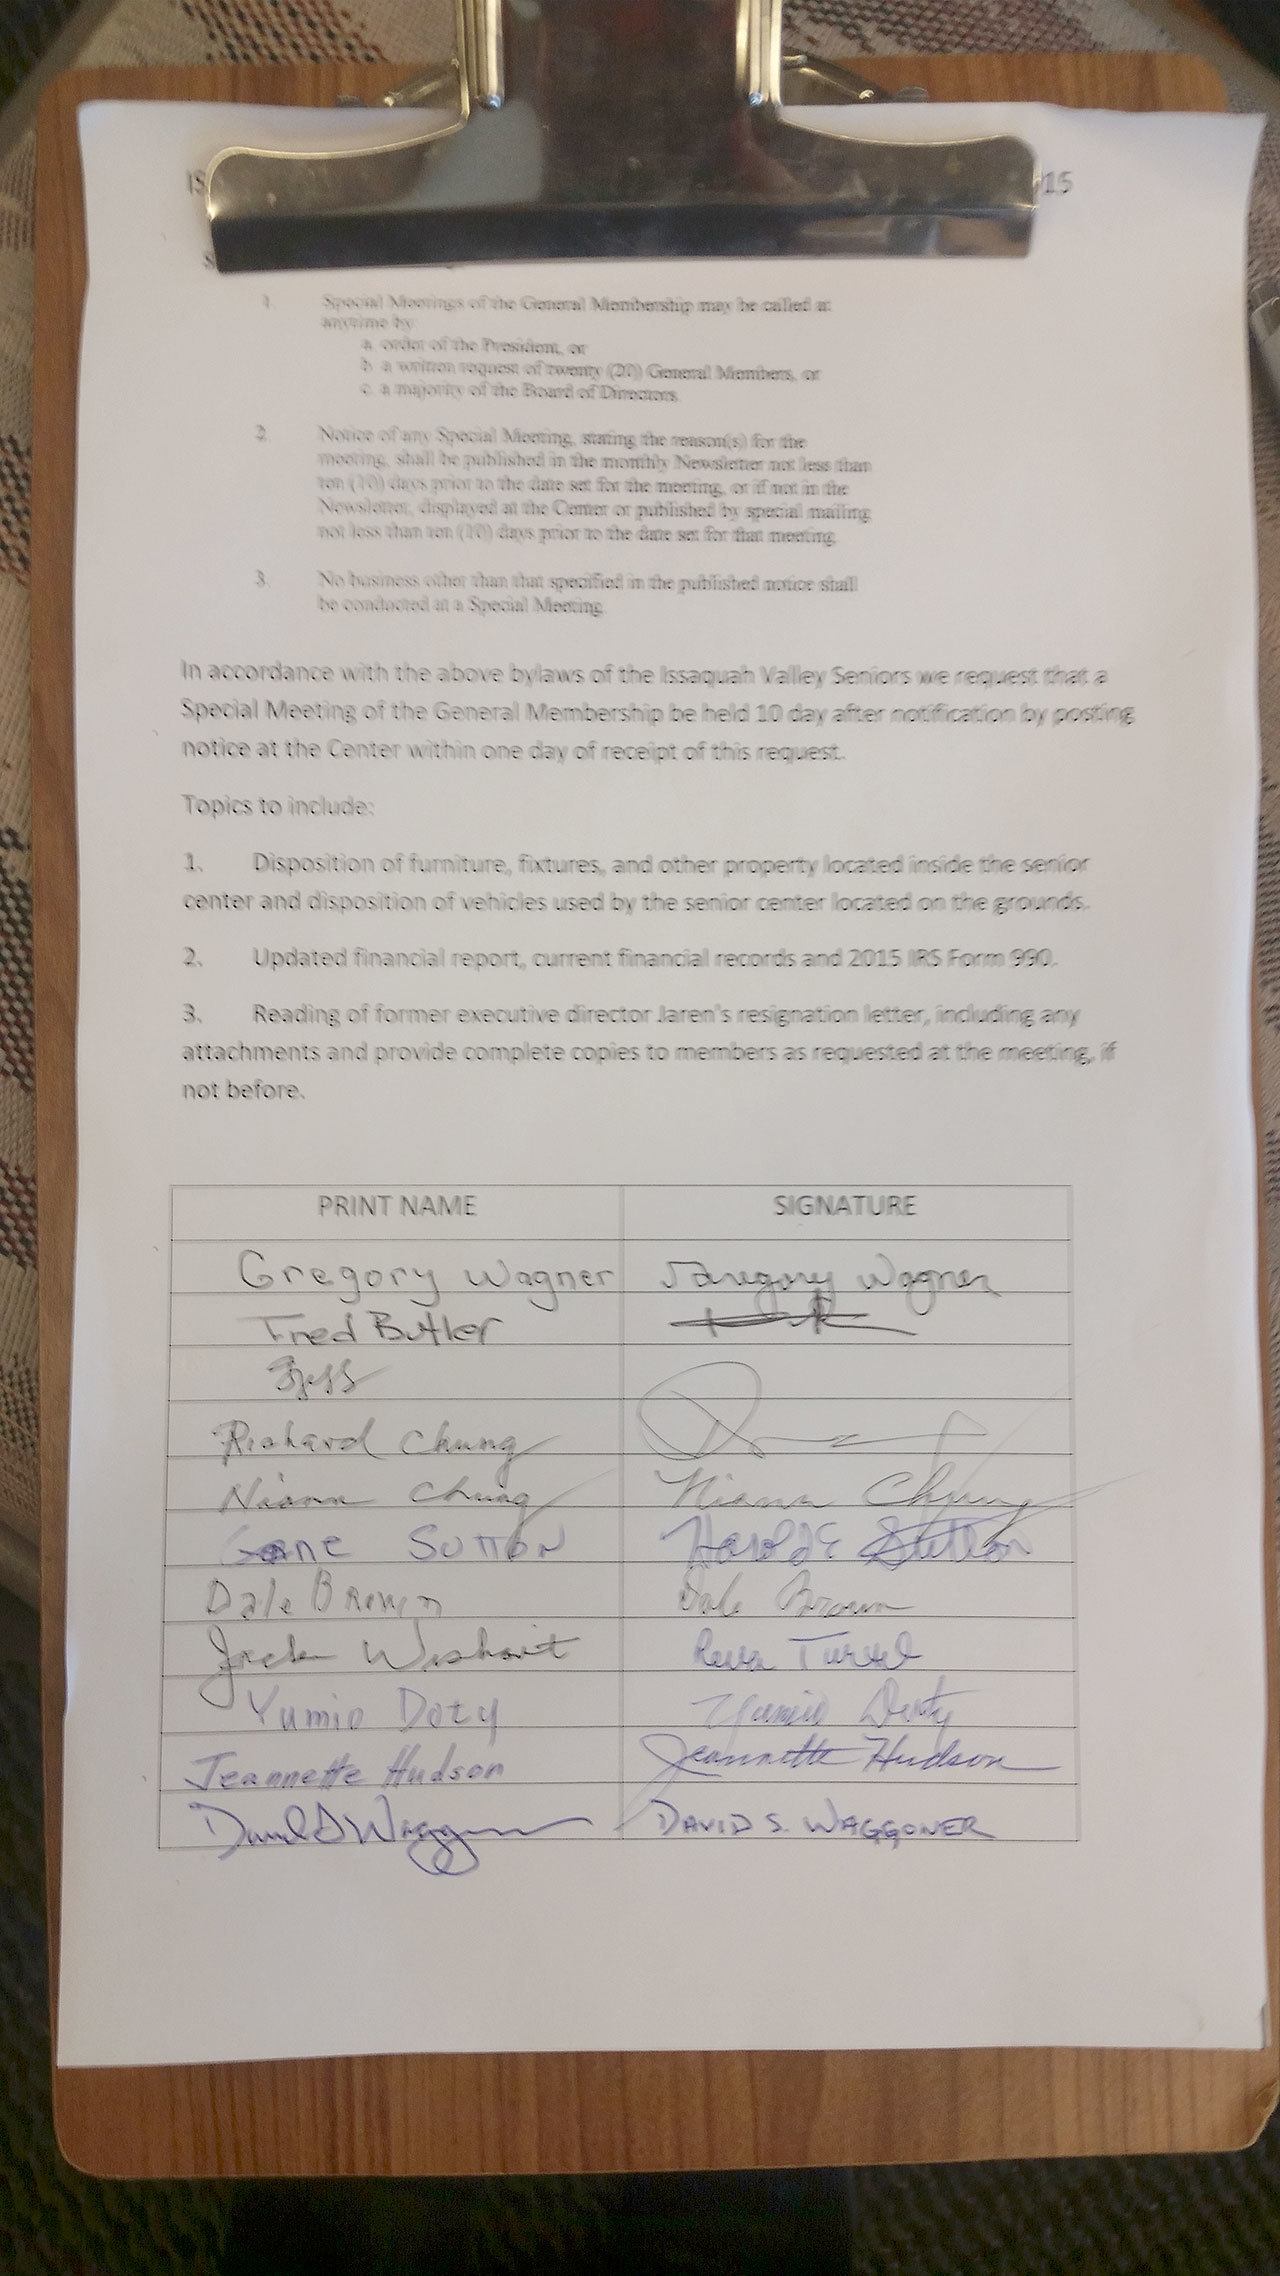 IS 15
S
1. Special Meetings of the General Membership may be called at
anytime by:
a. order of the President, or
b. a written request of twenty (20) General Members, or
c. a majority of the Board of Directors.
2. Notice of any Special Meeting, stating the reason(s) for the
meeting, shall be published in the monthly Newsletter not less than
ten (10) days prior to the date set for the meeting, or if not in the
Newsletter, displayed at the Center or published by special mailing
not less than ten (10) days prior to the date set for that meeting.
3. No business other than that specified in the published notice shall
be conducted at a Special Meeting.
In accordance with the above bylaws of the Issaquah Valley Seniors we request that a
Special Meeting of the General Membership be held 10 day after notification by posting
notice at the Center within one day of receipt of this request.
Topics to include:
1. Disposition of furniture, fixtures, and other property located inside the senior
center and disposition of vehicles used by the senior center located on the grounds.
2. Updated financial report, current financial records and 2015 IRS Form 990.
3. Reading of former executive director Jaren's resignation letter, including any
attachments and provide complete copies to members as requested at the meeting, if
not before.
PRINT NAME SIGNATURE
Gregory Wagner Gregory Wagner
Fred Butler
Richard Chung
Niann Chung Niann Chung
Gene SUTTON Harold E Sutton
Dale Brown Dale Brown
Jack Wishart
Yumio Doty Yumio Doty
Jeannette Hudson Jeannette Hudson
David S Waggoner DAVID S. WAGGONER